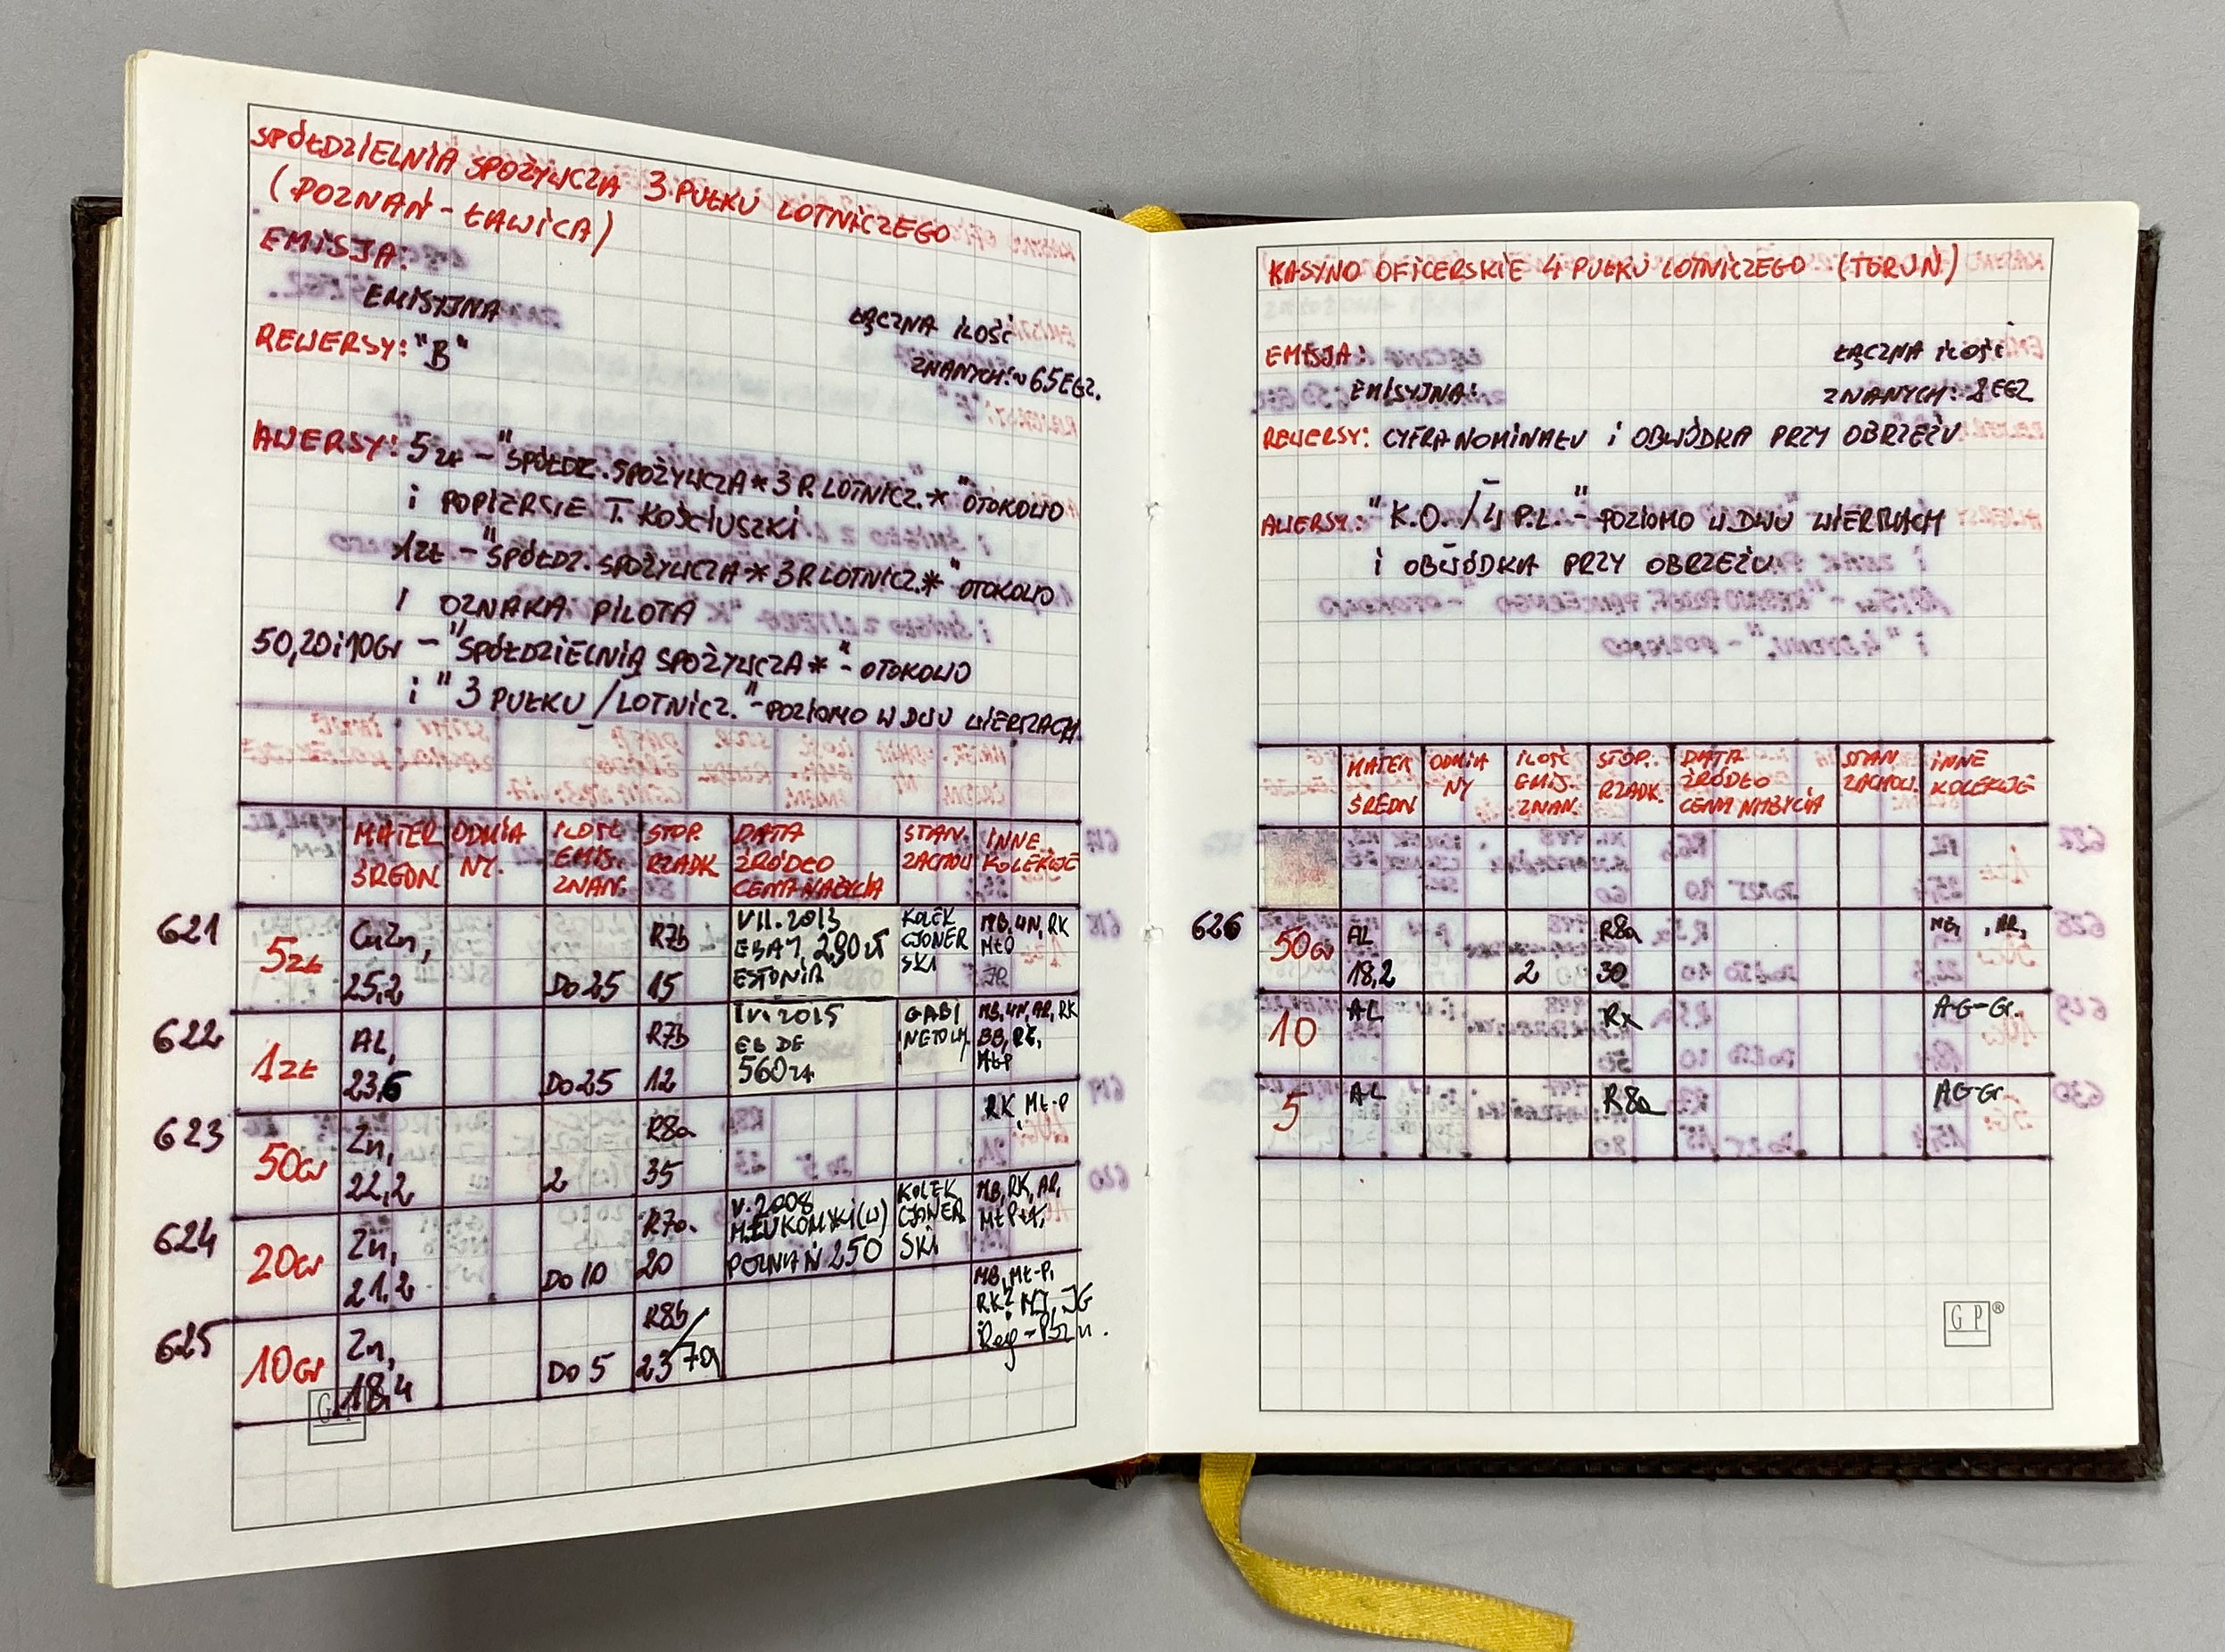 SPÓŁDZIELNIA SPOŻYWCZA 3 PUŁKU LOTNICZEGO
(POZNAŃ - ŁAWICA)
EMISJA:
EMISYJNA
ŁĄCZNA ILOŚĆ
ZNANYCH: ~65 EGZ.
REWERSY: "B"
AWERSY: 5 zł - "SPÓŁDZ. SPOŻYWCZA * 3 P. LOTNICZ. * " OTOKOWO
i POPIERSIE T. KOŚCIUSZKI
1zł - "SPÓŁDZ. SPOŻYWCZA * 3 P. LOTNICZ. * " OTOKOWO
I OZNAKA PILOTA
50, 20 i 10 Gr - "SPÓŁDZIELNIA SPOŻYWCZA * " - OTOKOWO
i "3 PUŁKU / LOTNICZ." - POZIOMO W DWU WIERSZACH
MATER ODMIA ILOŚĆ STOP. DATA STAN. INNE
ŚREDN. NY. EMIS. RZADK ŹRÓDŁO ZACHOW KOLEKCJE
ZNAN. CENA NABYCIA
621 5 zł CuZn, 25,2 DO 25 R7b 15 VII.2013 EBAY, 290 zł ESTONIA KOLEKCJONERSKI MB, WN, RK
622 1 zł AL, 23,6 DO 25 R7b 12 2015 EB DE 560 zł GABINETOWY MB, WN, AR, RK BB,
623 50 Gr Zn, 22,2 2 R8a 35 RK, MŁ-P
624 20 Gr Zn, 21,2 DO 10 R7a. 20 V.2008 POZNAŃ 250 KOLEKCJONERSKI MB, RK, AR,
625 10 Gr Zn, 18,4 DO 5 R8b/7a 23 MB, MŁ-P, RK? JG
G P
KASYNO OFICERSKIE 4 PUŁKU LOTNICZEGO (TORUŃ)
EMISJA:
EMISYJNA:
ŁĄCZNA ILOŚĆ
ZNANYCH: 8 EGZ
REWERSY: CYFRA NOMINAŁU i OBWÓDKA PRZY OBRZEŻU
AWERSY: "K.O. / 4 P.L." - POZIOMO W DWU WIERSZACH
i OBWÓDKA PRZY OBRZEŻU
MATER ODMIA ILOŚĆ STOP. DATA STAN INNE
ŚREDN NY EMIS. RZADK. ŹRÓDŁO ZACHOW. KOLEKCJE
ZNAN. CENA NABYCIA
626 50 Gr AL 18,2 2 R8a 30 AR,
10 AL Rx AG-Gr.
5 AL R8a AG-Gr
G P ®